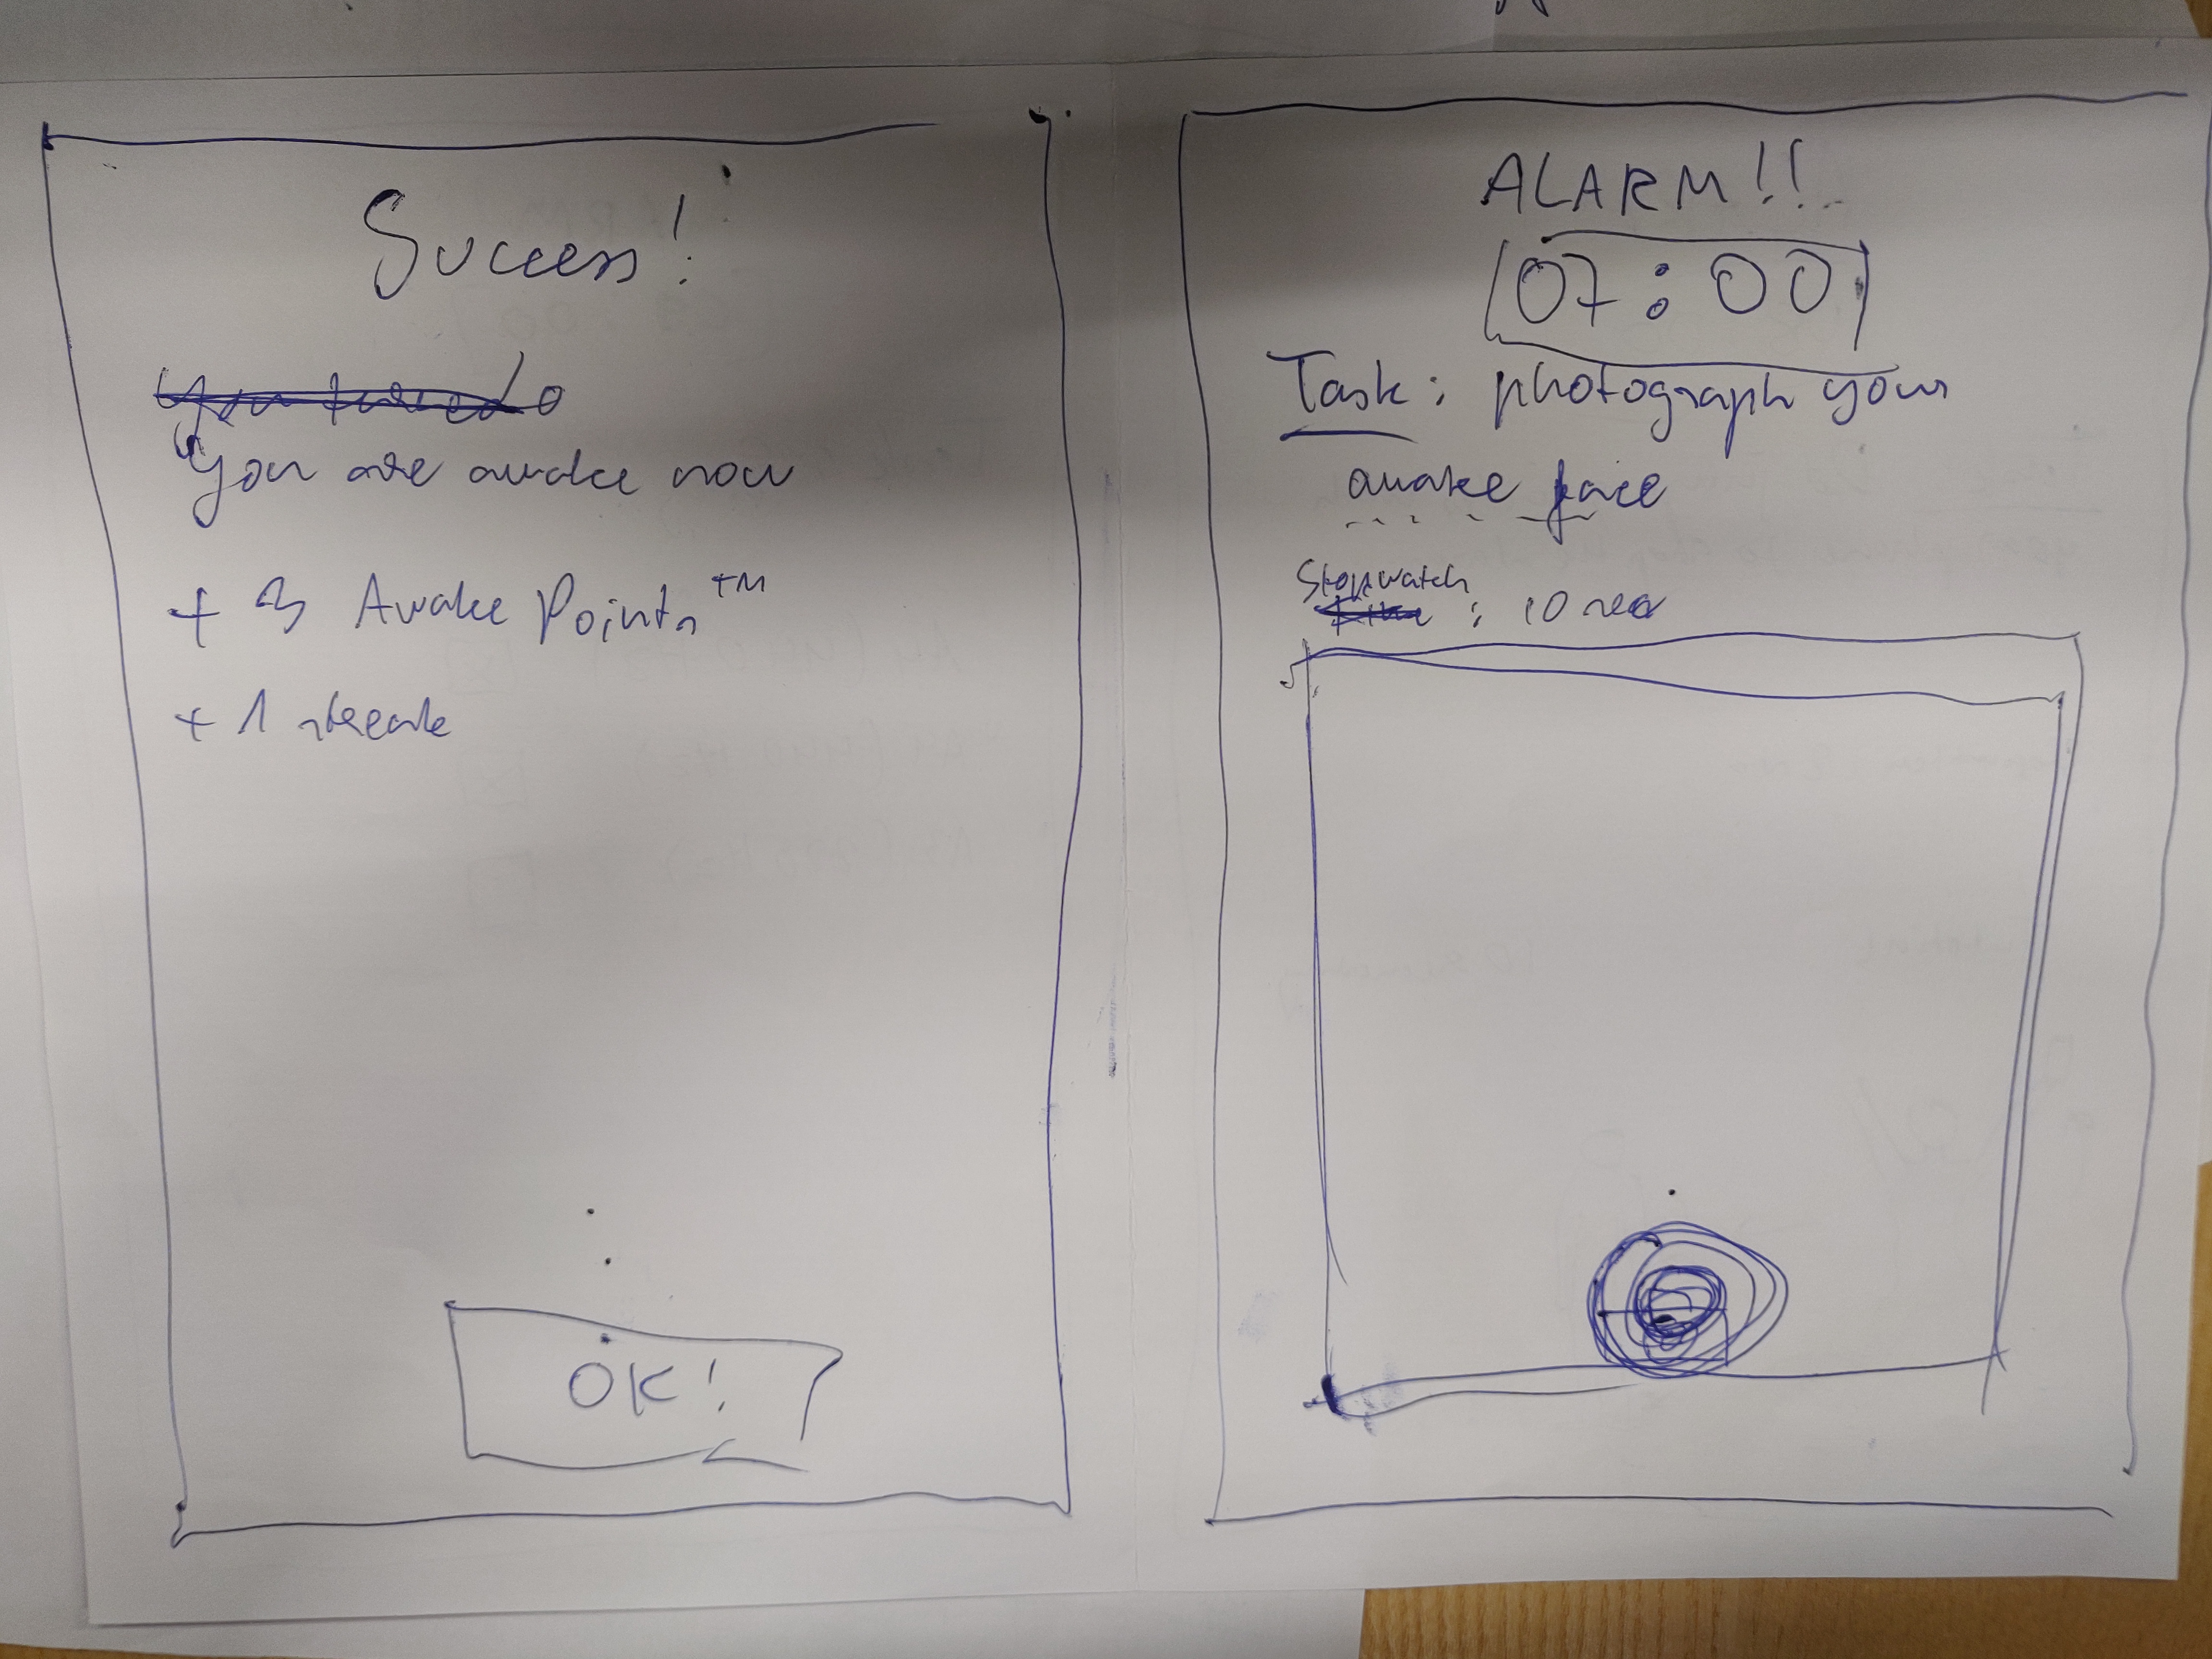 Success!
You are awake now
+ 3 Awake Points™
+ 1 streak
OK!
ALARM!!
07:00
Task: photograph your
awake face
Stopwatch
: 10 sec